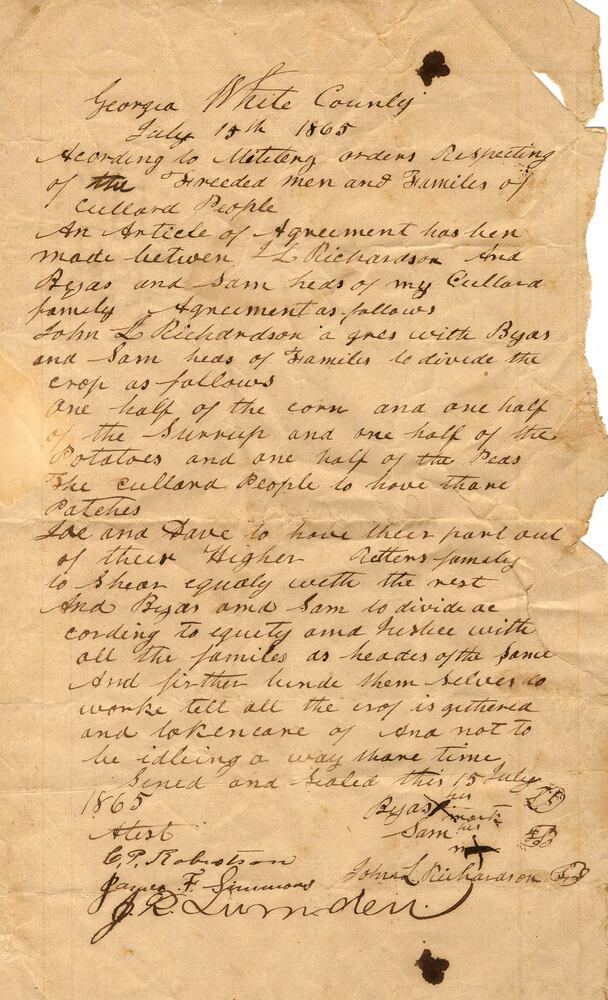 Georgia White County
July 15th 1865
Acording to Meletery orders Respecting
of the Freeded men and Familes of
Cullard People
An Article of Agreement has ben
made betwen J L Richardson And
Byas and Sam heds of my Cullard
family Agreement as follows
John L Richardson a gres with Byas
and Sam heds of Familes to divide the
crop as follows
One half of the corn and one half
of the Surrup and one half of the
Potatoes and one half of the Peas
The Cullard People to have thare
Patches
Joe and Dave to have their part out
of their Higher Retters family
to Shear equaly with the rest
And Byas and Sam to divide ac
cording to equity and Justice with
all the familes as heades of the Same
And firther binde them selves to
worke tell all the crop is gethered
and token care of And not to
be idleing a way thare time
Sined and Sealed this 15 July
1865
Byas his X mark LS
Sam his X LS
Atest
C. P. Robertson
James F. Simmons
John L Richardson LS
J. R. Lumsden